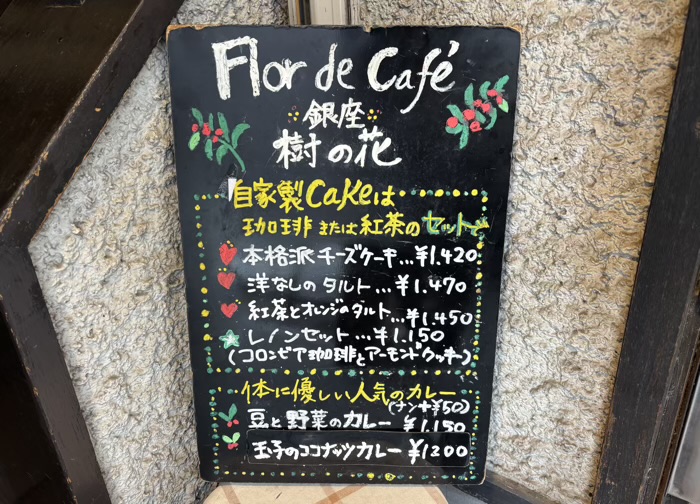 Flor de Café
銀座
樹の花
自家製Cakeは
珈琲または紅茶のセットで
本格派チーズケーキ...¥1.420
洋なしのタルト...¥1.470
紅茶とオレンジのタルト...¥1.450
レノンセット...¥1.150
(コロンビア珈琲とアーモンドクッキー)
体に優しい人気のカレー
(ナン+¥50)
豆と野菜のカレー ¥1.150
玉子のココナッツカレー ¥1200